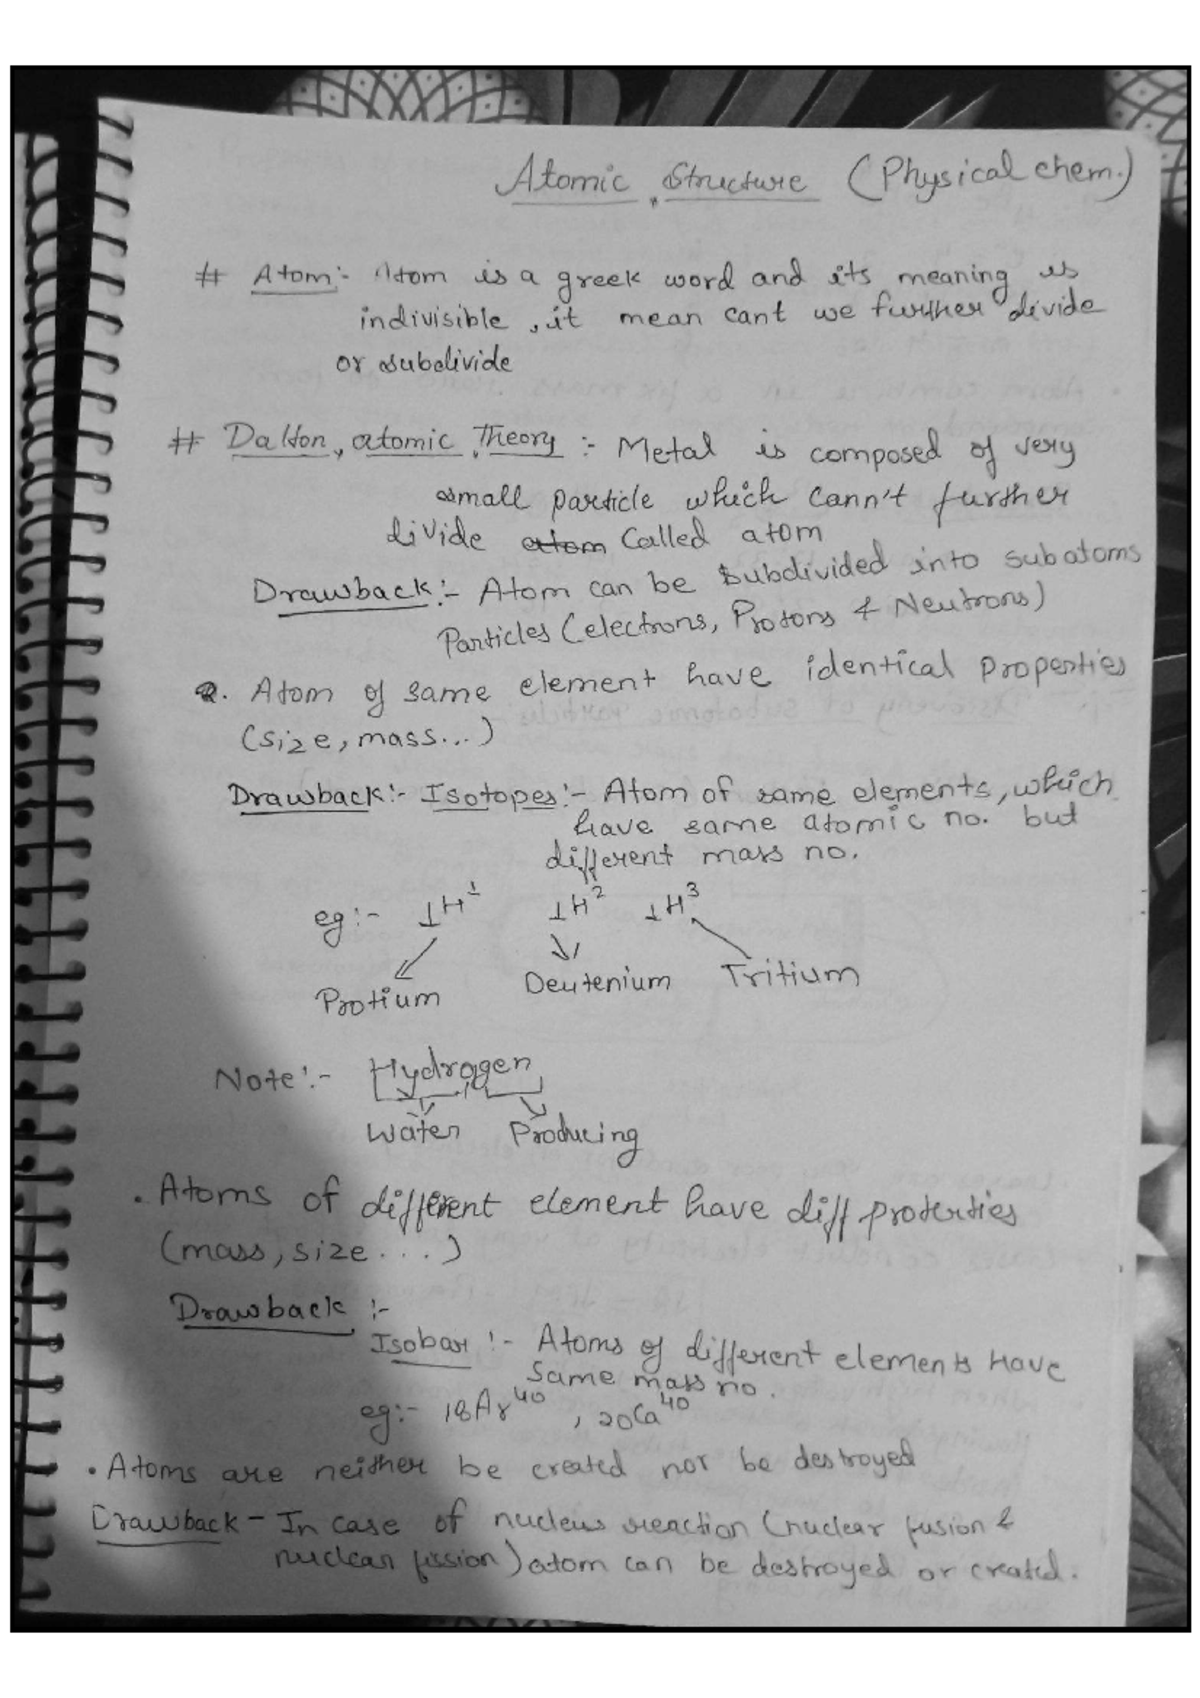 Atomic Structure (Physical chem.)
# Atom:- Atom is a greek word and its meaning is
indivisible, it mean cant we further divide
or subdivide
# Dalton, atomic, Theory :- Metal is composed of very
small particle which cann't further
divide atom Called atom
Drawback:- Atom can be subdivided into subatoms
Particles (electrons, Protons & Neutrons)
2. Atom of same element have identical properties
(size, mass...)
Drawback:- Isotopes:- Atom of same elements, which
have same atomic no. but
different mass no.
eg:- 1H1 1H2 1H3
Protium Deutenium Tritium
Note:- Hydrogen
Water Producing
. Atoms of different element have diff proterties
(mass, size ....)
Drawback :-
Isobar :- Atoms of different elements Have
Same mass no.
eg:- 18Ar40, 20Ca40
. Atoms are neither be created nor be destroyed
Drawback - In case of nucleus reaction (nuclear fusion &
nuclear fission) atom can be destroyed or created.